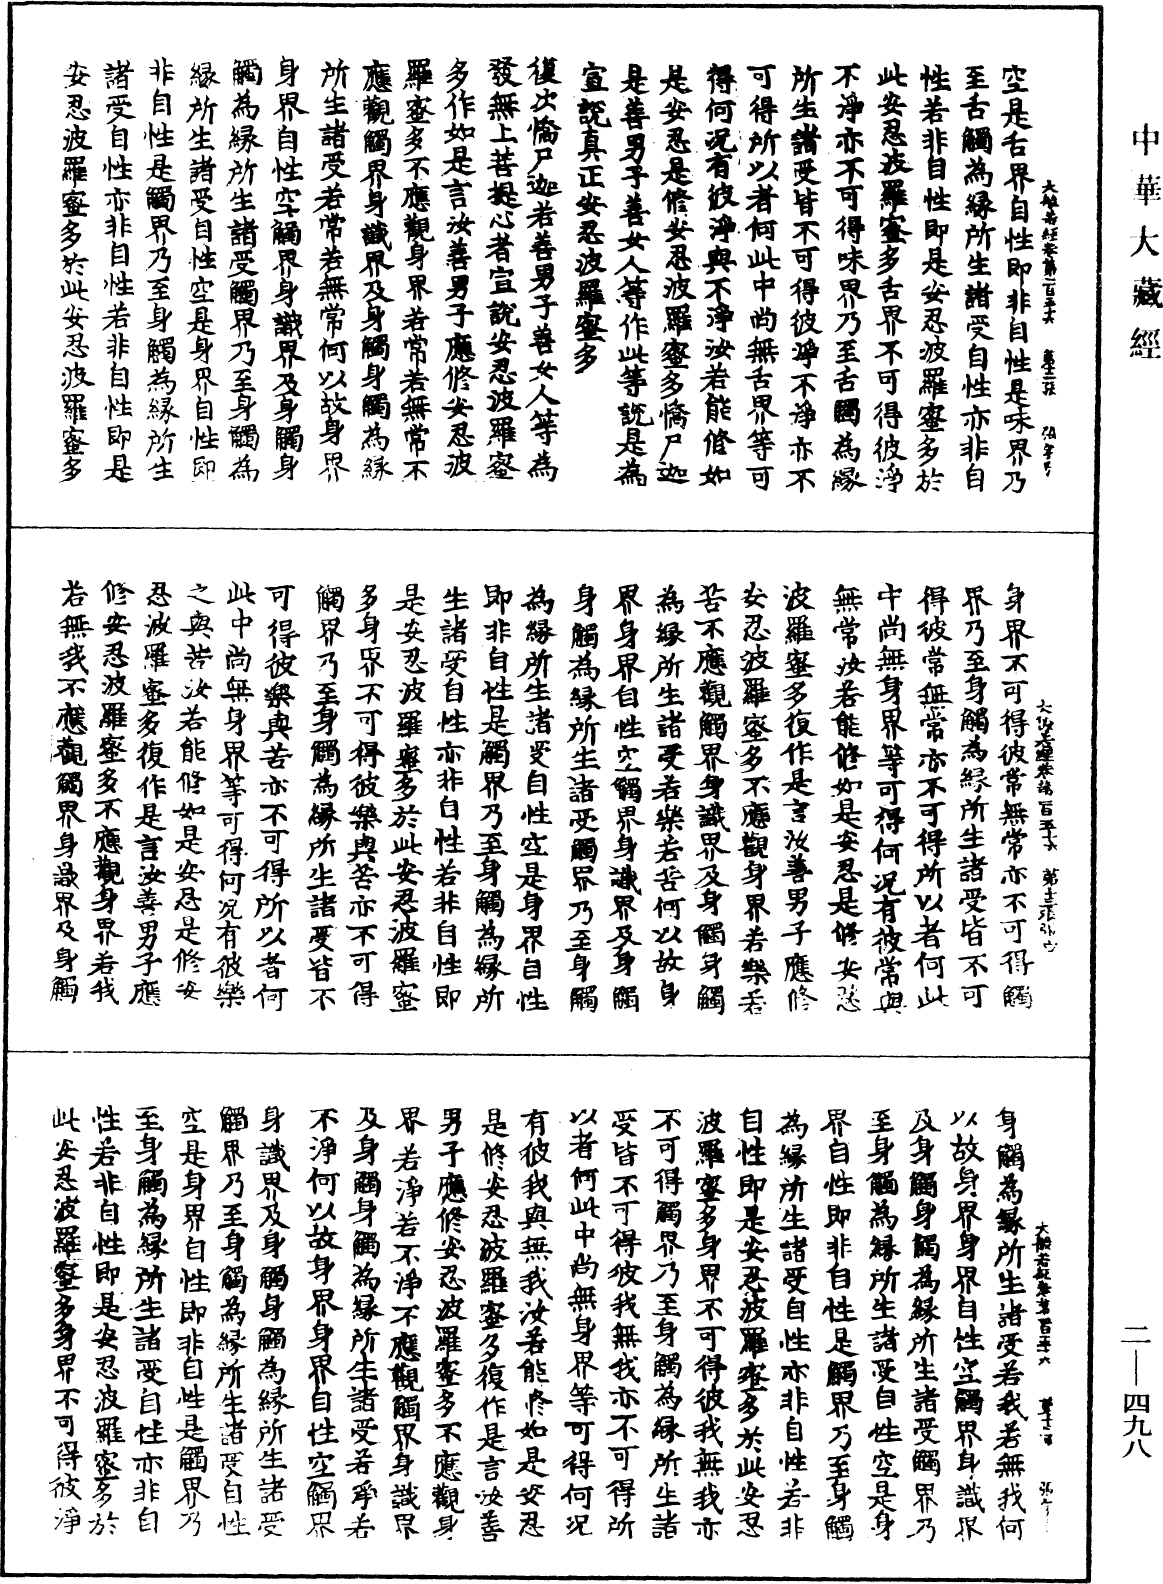 中華大藏經
空是舌界自性即非自性是味界乃
至舌觸為緣所生諸受自性亦非自
性若非自性即是安忍波羅蜜多於
此安忍波羅蜜多舌界不可得彼淨
不淨亦不可得味界乃至舌觸為緣
所生諸受皆不可得彼淨不淨亦不
可得所以者何此中尚無舌界等可
得何況有彼淨與不淨汝若能修如
是安忍是修安忍波羅蜜多憍尸迦
是善男子善女人等作此等說是為
宣說真正安忍波羅蜜多
復次憍尸迦若善男子善女人等為
發無上菩提心者宣說安忍波羅蜜
多作如是言汝善男子應修安忍波
羅蜜多不應觀身界若常若無常不
應觀觸界身識界及身觸身觸為緣
所生諸受若常若無常何以故身界
身界自性空觸界身識界及身觸身
觸為緣所生諸受觸界乃至身觸為
緣所生諸受自性空是身界自性即
非自性是觸界乃至身觸為緣所生
諸受自性亦非自性若非自性即是
安忍波羅蜜多於此安忍波羅蜜多
身界不可得彼常無常亦不可得觸
界乃至身觸為緣所生諸受皆不可
得彼常無常亦不可得所以者何此
中尚無身界等可得何況有彼常與
無常汝若能修如是安忍是修安忍
波羅蜜多復作是言汝善男子應修
安忍波羅蜜多不應觀身界若樂若
苦不應觀觸界身識界及身觸身觸
為緣所生諸受若樂若苦何以故身
界身界自性空觸界身識界及身觸
身觸為緣所生諸受觸界乃至身觸
為緣所生諸受自性空是身界自性
即非自性是觸界乃至身觸為緣所
生諸受自性亦非自性若非自性即
是安忍波羅蜜多於此安忍波羅蜜
多身界不可得彼樂與苦亦不可得
觸界乃至身觸為緣所生諸受皆不
可得彼樂與苦亦不可得所以者何
此中尚無身界等可得何況有彼樂
之與苦汝若能修如是安忍是修安
忍波羅蜜多復作是言汝善男子應
修安忍波羅蜜多不應觀身界若我
若無我不應觀觸界身識界及身觸
身觸為緣所生諸受若我若無我何
以故身界身界自性空觸界身識界
及身觸身觸為緣所生諸受觸界乃
至身觸為緣所生諸受自性空是身
界自性即非自性是觸界乃至身觸
為緣所生諸受自性亦非自性若非
自性即是安忍波羅蜜多於此安忍
波羅蜜多身界不可得彼我無我亦
不可得觸界乃至身觸為緣所生諸
受皆不可得彼我無我亦不可得所
以者何此中尚無身界等可得何況
有彼我與無我汝若能修如是安忍
是修安忍波羅蜜多復作是言汝善
男子應修安忍波羅蜜多不應觀身
界若淨若不淨不應觀觸界身識界
及身觸身觸為緣所生諸受若淨若
不淨何以故身界身界自性空觸界
身識界及身觸身觸為緣所生諸受
觸界乃至身觸為緣所生諸受自性
空是身界自性即非自性是觸界乃
至身觸為緣所生諸受自性亦非自
性若非自性即是安忍波羅蜜多於
此安忍波羅蜜多身界不可得彼淨
二—四九八